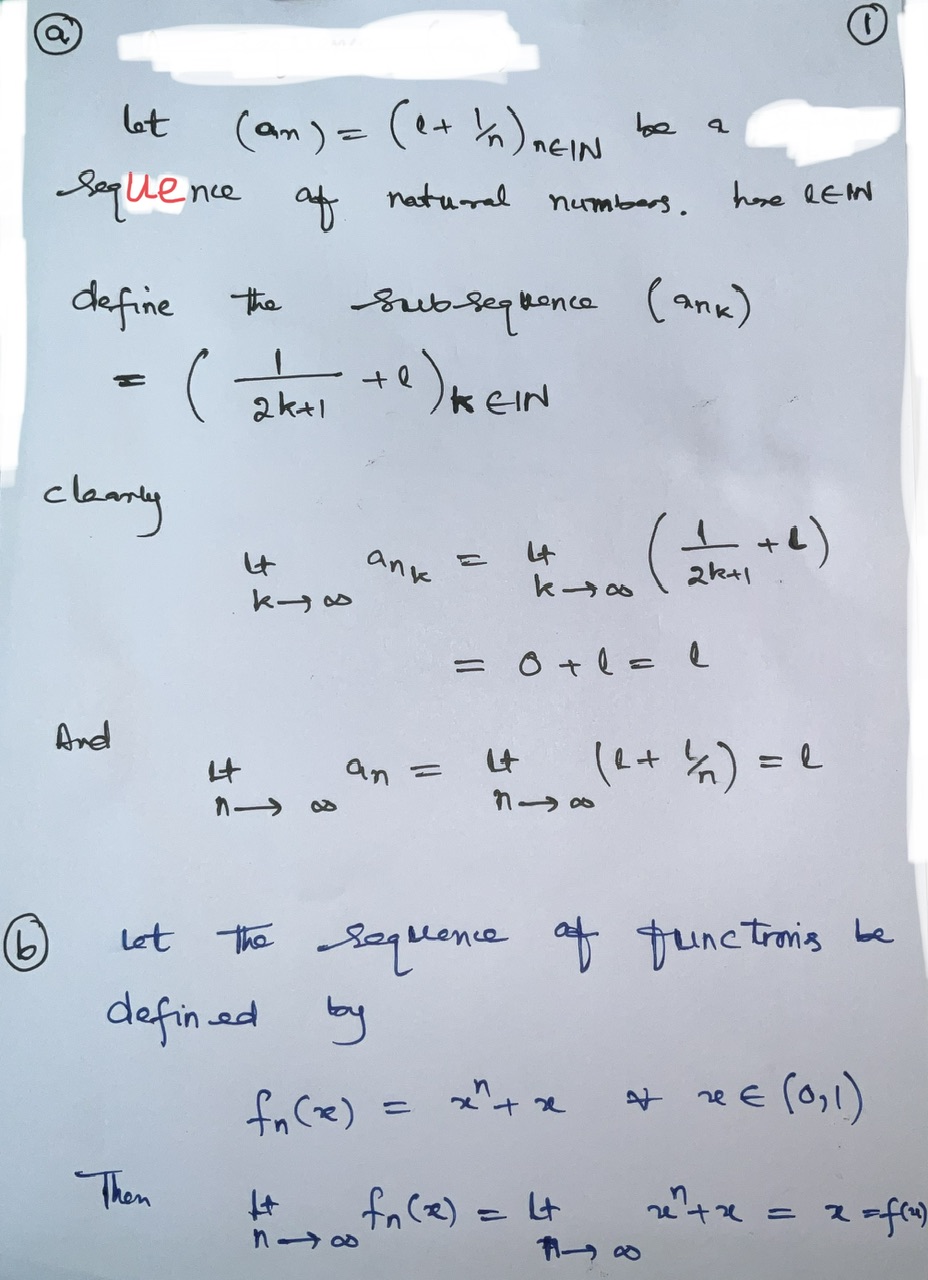 ⓐ ①
let (an) = (l + 1/n) n∈IN be a
sequence of natural numbers. here l∈IN
define the subsequence (ank)
= ( 1/(2k+1) + l ) k∈IN
clearly
lt k→∞ ank = lt k→∞ ( 1/(2k+1) + l )
= 0 + l = l
And
lt n→∞ an = lt n→∞ (l + 1/n) = l
ⓑ let the sequence of functions be
defined by
fn(x) = xⁿ + x ∀ x ∈ (0,1)
Then lt n→∞ fn(x) = lt n→∞ xⁿ + x = x = f(x)